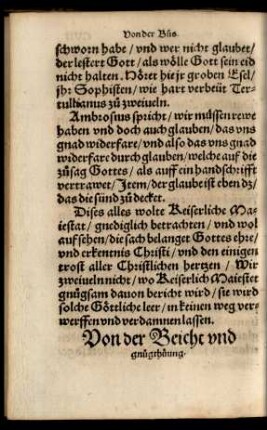 Von der Bůs
schworn habe / vnd wer nicht glaubet /
der lestert Gott / als wölle Gott sein eid
nicht halten. Hőret hie jr groben Esel /
jhr Sophisten / wie hart verbeüt Ter-
tullianus zů zweiueln.
Ambrosius spricht / wir müssen rewe
haben vnd doch auch glauben / das vns
gnad widerfare / vnd also das vns gnad
widerfare durch glauben / welche auff die
zůsag Gottes / als auff ein handschrifft
vertrawet / Jtem / der glaube ist eben dz /
das die sünd zů decket.
Dises alles wolte Keiserliche Ma-
iestat / gnediglich betrachten / vnd wol
auffsehen / die sach belanget Gottes ehre /
vnd erkentnis Christi / vnd den einigen
trost aller Christlichen hertzen / Wir
zweiueln nicht / wo Keiserlich Maiestet
gnůgsam dauon bericht wird / sie wird
solche Göttliche leer / in keinen weg ver-
werffen vnd verdammen lassen.
Von der Beicht vnd
gnůgthůung.